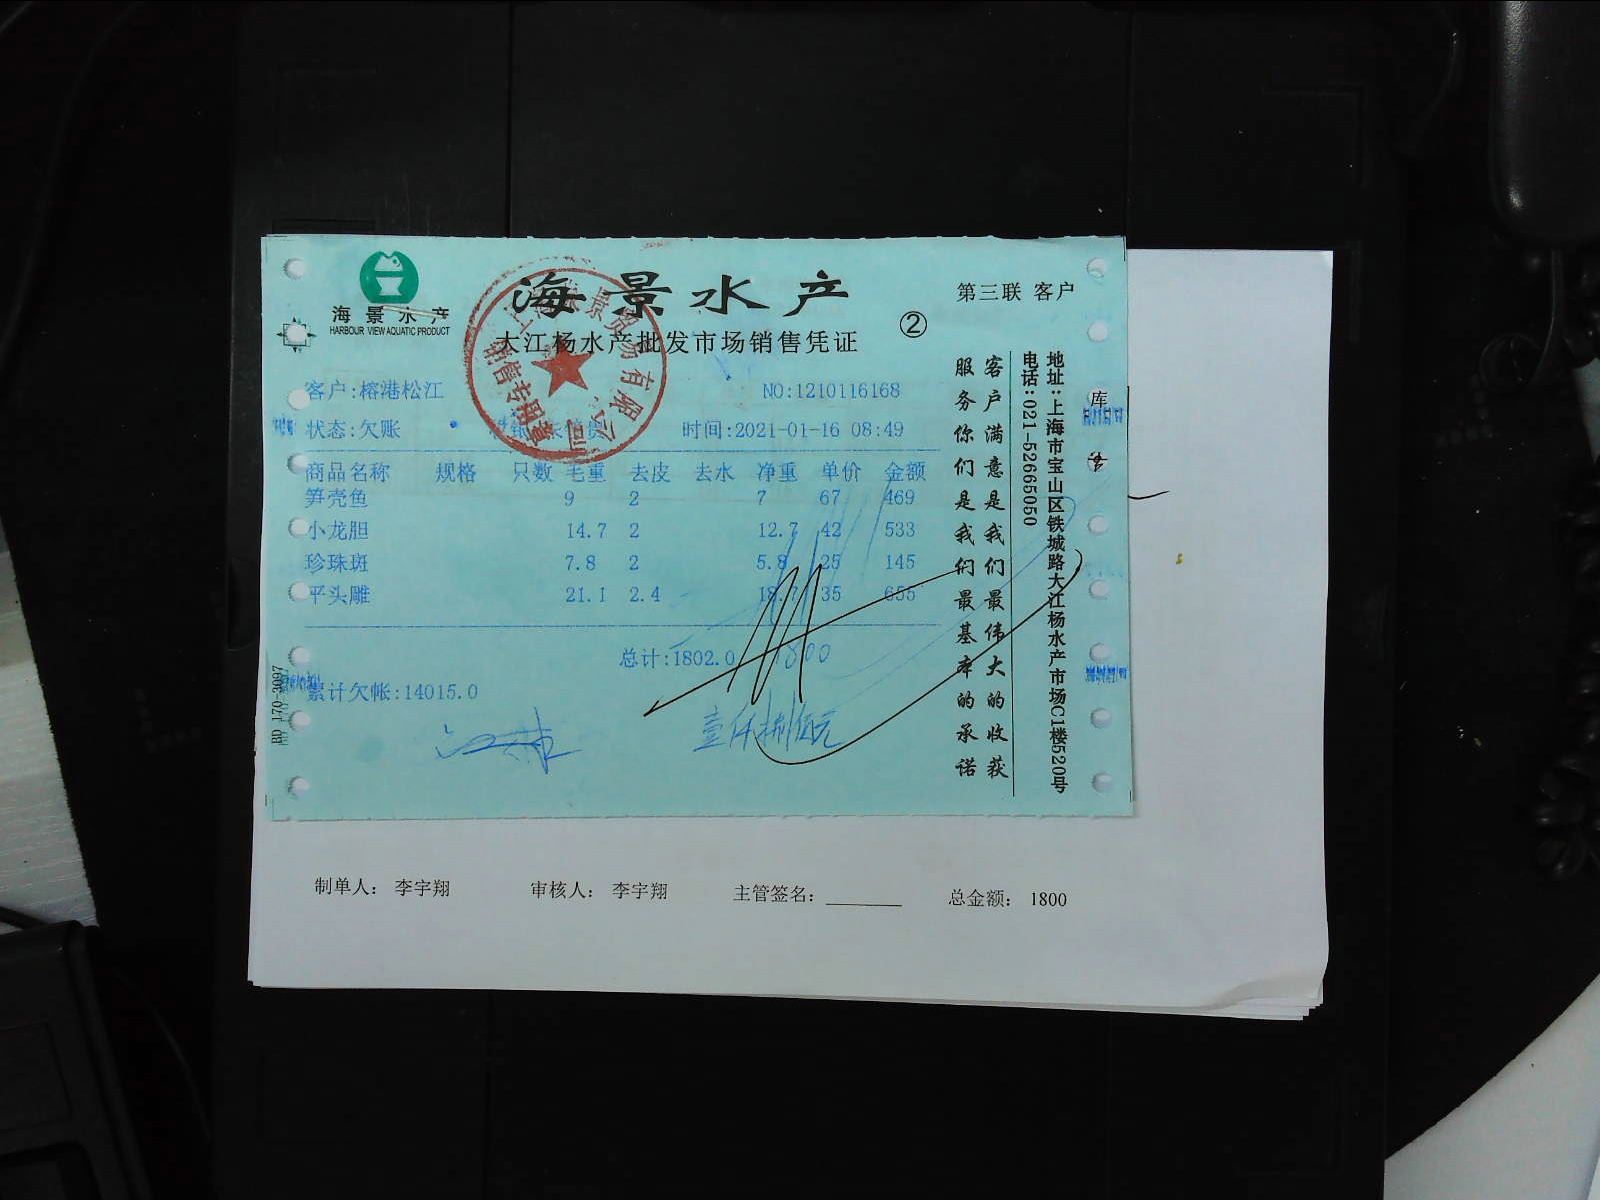 海景水产
HARBOUR VIEW AQUATIC PRODUCT
海景水产
大江杨水产批发市场销售凭证
②
第三联 客户
客户:榕港松江
NO:1210116168
状态:欠账
时间:2021-01-16 08:49
商品名称 规格 只数 毛重 去皮 去水 净重 单价 金额
笋壳鱼 9 2 7 67 469
小龙胆 14.7 2 12.7 42 533
珍珠斑 7.8 2 5.8 25 145
平头雕 21.1 2.4 18.7 35 655
总计:1802.0 1800
累计欠帐:14015.0
壹仟捌佰元
客户满意是我们最伟大的收获
服务你们是我们最基本的承诺
地址:上海市宝山区铁城路大江杨水产市场C1楼520号
电话:021-52665050
BD 170-3097
景贸易有限公司
销售专用章
库
制单人: 李宇翔 审核人: 李宇翔 主管签名: 总金额: 1800